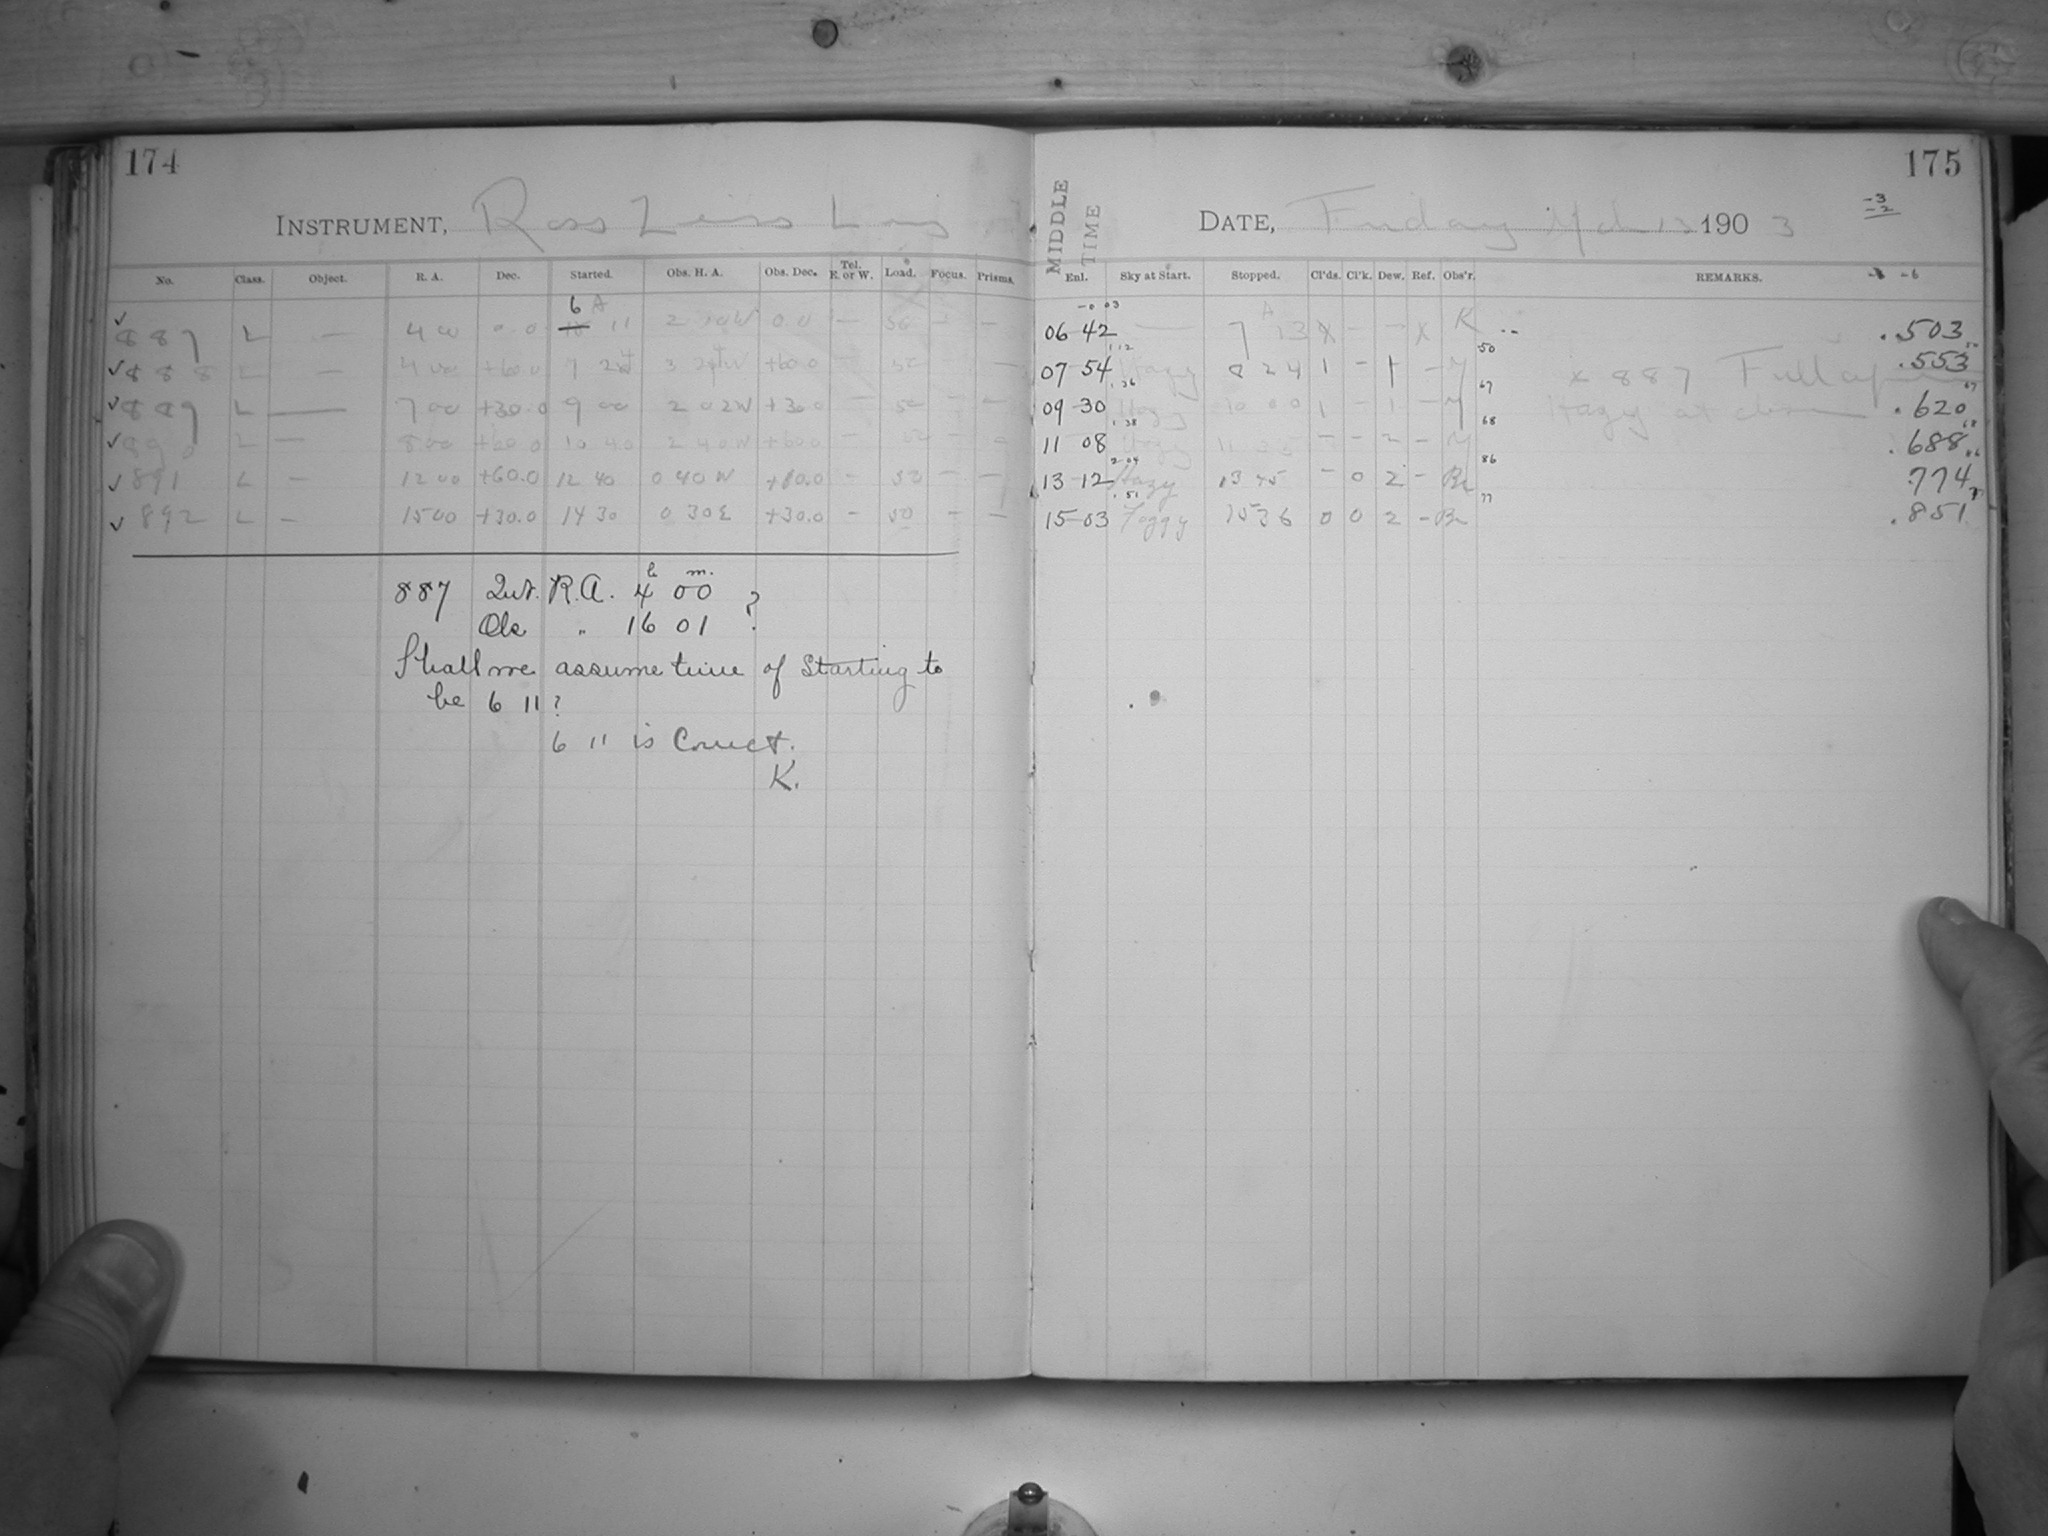 174
INSTRUMENT, Ross Zeiss Lens
No. Class. Object. R. A. Dec. Started. Obs. H. A. Obs. Dec. Tel. E. or W. Load. Focus. Prisms.
6 A
887 L — 4 00 0.0 11 2 0.0 50 — —
888 L — 4 00 +60.0 7 24 3 24W +60.0 50 —
889 L — 7 00 +30.0 9 00 2 02W +30.0 — 50 — —
890 L — 8 00 +60.0 10 40 2 40W +60.0 — 50 —
891 L — 12 00 +60.0 12 40 0 40 W +60.0 — 50 — —
892 L — 15 00 +30.0 14 30 0 30 E +30.0 — 50 — —
h m.
887 Int. R.A. 4 00 ?
Obs " 16 01
Shall we assume time of Starting to
be 6 11?
6 11 is Correct.
K.
175
MIDDLE TIME
DATE, Friday Mch 13 1903
-3
-2
Enl. Sky at Start. Stopped. Cl'ds. Cl'k. Dew. Ref. Obs'r. REMARKS. -6
-0 03
A
06 42 — 7 13 X — — X K .503
1 12 50
07 54 Hazy 8 24 1 — 1 — M x 887 Full .553
1.36 67
09 30 Hazy 10 00 1 — 1 — M Hazy at close .620
1.38 68
11 08 Hazy 11 35 — — 2 — M .688
2 04 86
13 12 Hazy 13 45 — 0 2 — Br 774
1.51 77
15 03 Foggy 15 36 0 0 2 — Br .851